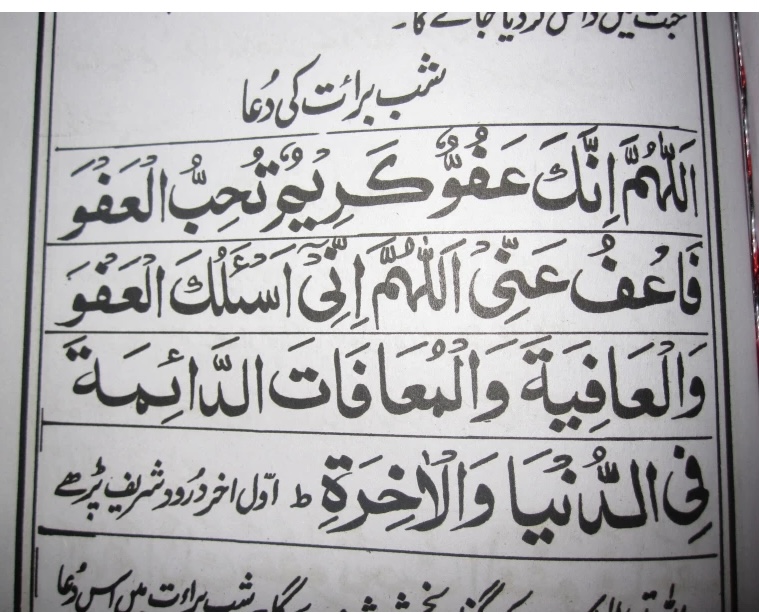 میں داخل کر دیا جائے گا۔
شب برائت کی دُعا
اَللّٰهُمَّ اِنَّكَ عَفُوٌّ كَرِيْمٌ تُحِبُّ الْعَفْوَ
فَاعْفُ عَنِّىْ اَللّٰهُمَّ اِنِّىْٓ اَسْئَلُكَ الْعَفْوَ
وَالْعَافِيَةَ وَالْمُعَافَاتَ الدَّائِمَةَ
فِى الدُّنْيَا وَالْاٰخِرَةِ ط اوّل اخر درُود شریف پڑھے
شب براءت میں اس دُعا